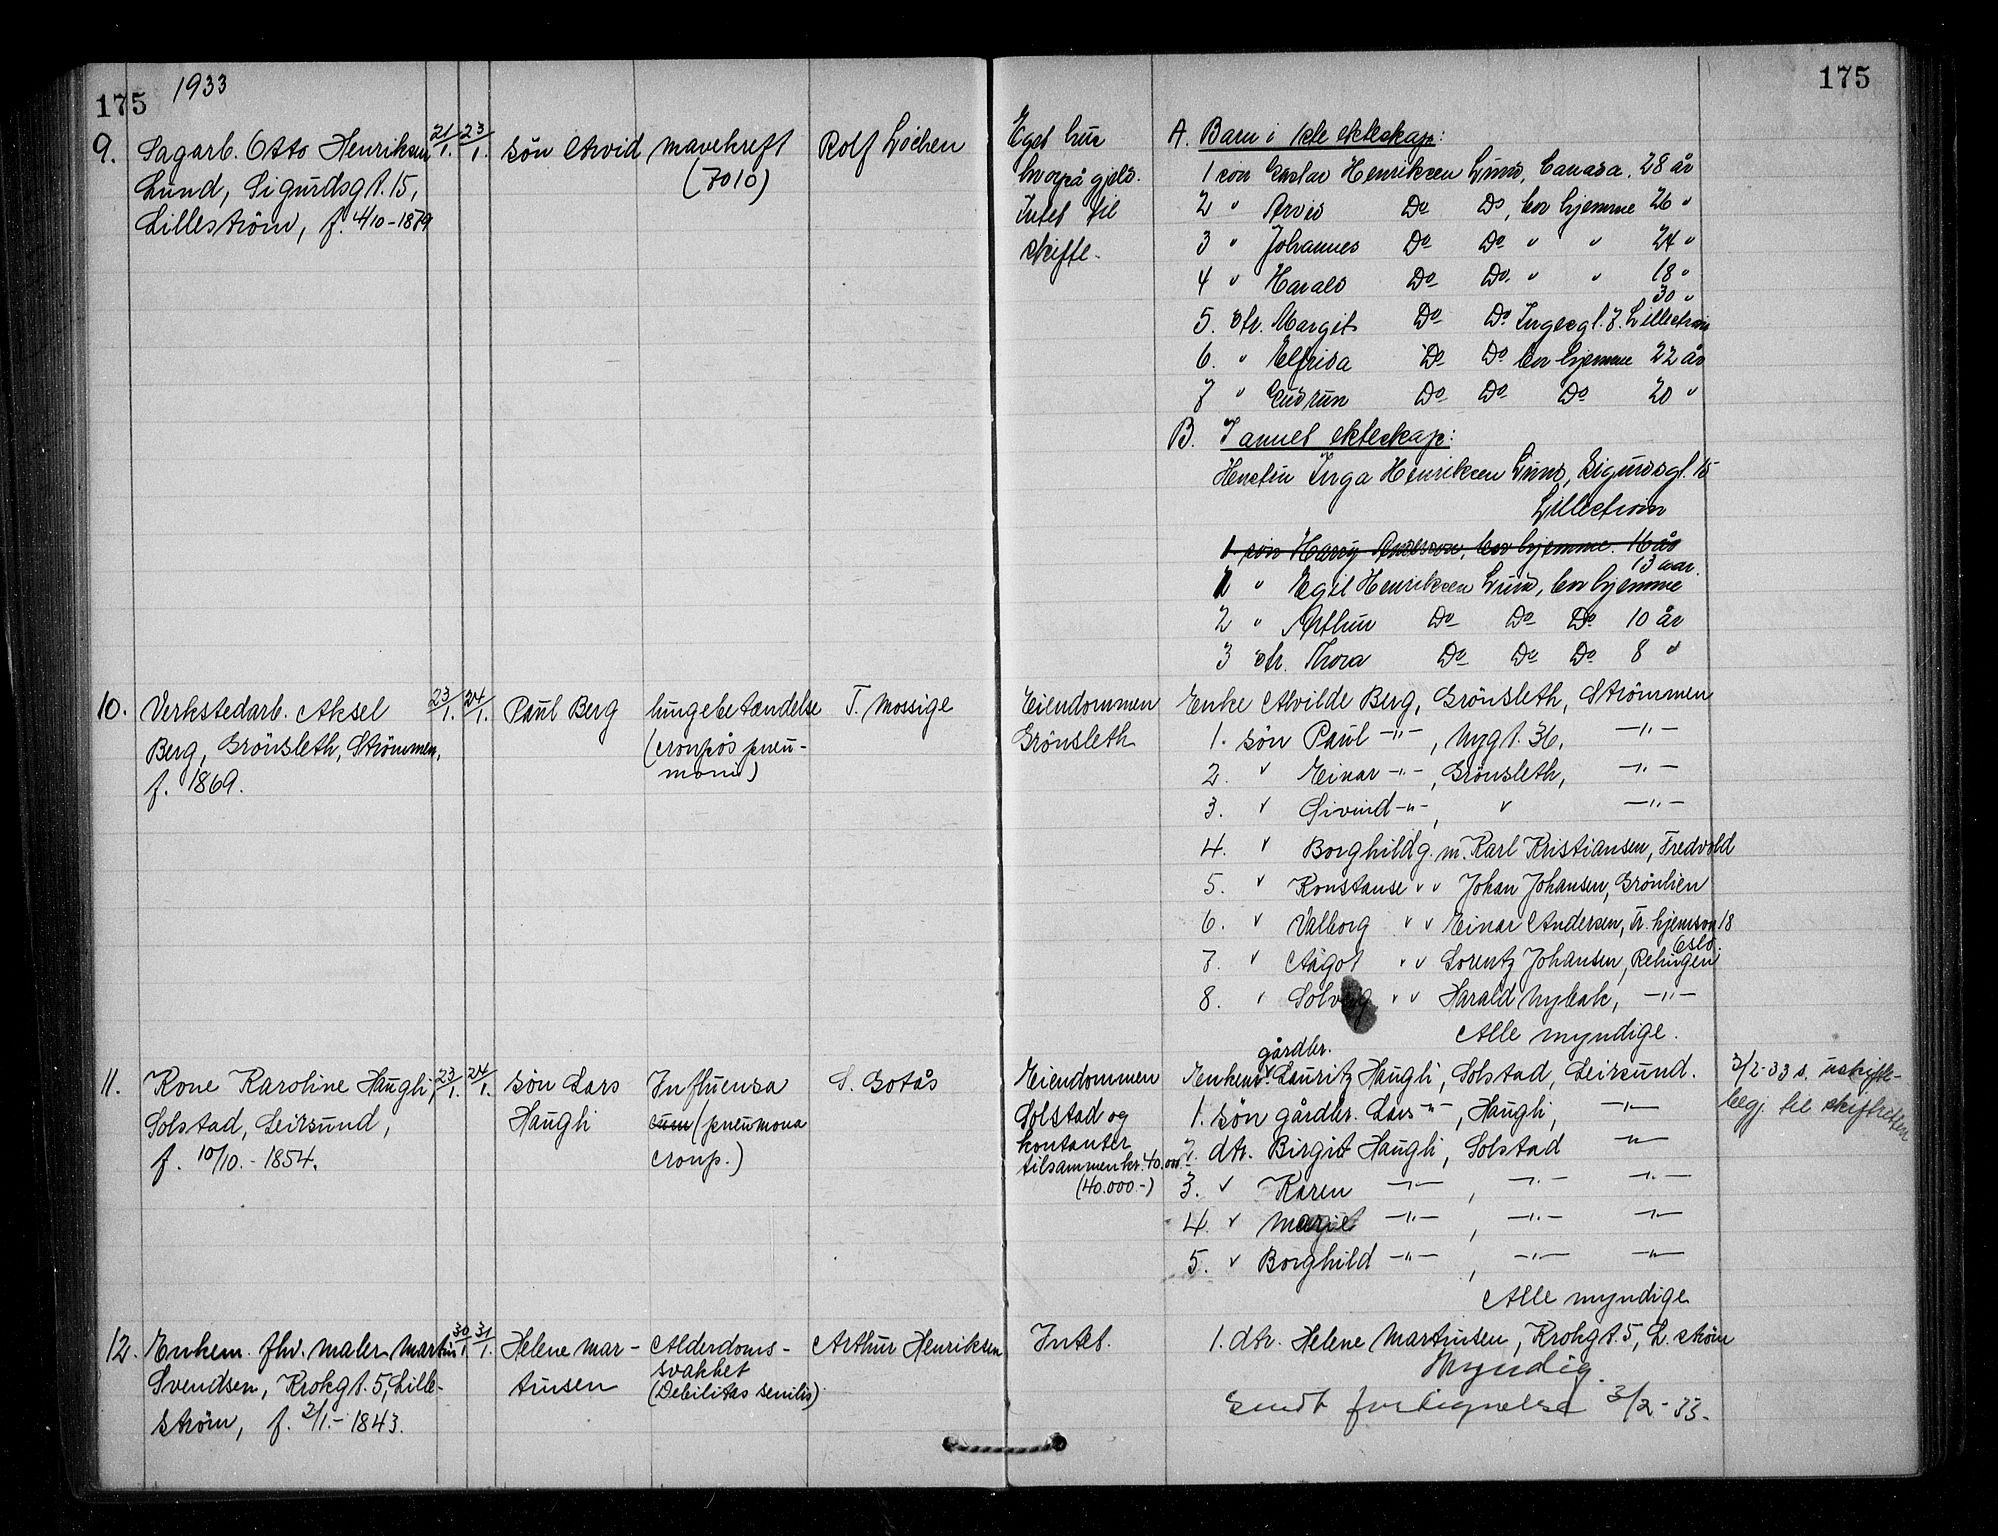 175
1933
175
9.
Sagarb. Otto Henriksen
Lund, Sigurdsgt. 15,
Lilleström, f. 4/10-1879
21/1.
23/1.
sön Arvid
mavekreft
(7010)
Rolf Lochen
Eget hus
hvorpå gjeld.
Intet til
skifte.
A. Barn i 1ste ekteskap:
1 sön Gustav Henriksen Lund, Canada. 28 år
2 " Arvid Do Do, bor hjemme 26 "
3 " Johannes Do Do " " 24 "
4 " Harald Do Do. " " 18 "
30 "
5. dtr. Margit Do Do Ingesgt. 7. Lilleström
6. " Elfrida Do Do bor hjemme 22 år
7 " Gudrun Do Do Do 20 "
B. I annet ekteskap:
Henstru Inga Henriksen Lund, Sigurdsgt. 15
Lilleström
1. sön Harry Anderson, bor hjemme. 16 år
13 aar.
1 " Egil Henriksen Lund, bor hjemme
2 " Arthur Do Do Do 10 år
3 dtr. Thora Do Do Do 8 "
10.
Verkstedarb. Aksel
Berg, Grönsleth, Strömmen,
f. 1869.
23/1.
24/1.
Paul Berg
lungebetændelse
(croupös pneu-
moni)
T. Mossige
Eiendommen
Grönsleth
Enke Alvilde Berg, Grönsleth, Strömmen
1. sön Paul -"-, Nygt. 36, -"-
2. " Einar -"-, Grönsleth, -"-
3. " Eivind -"-, " -"-
4. " Borghild g. m. Karl Kristiansen, Fredvold
5. " Konstanse " " Johan Johansen, Grönlien
6. " Valborg " " Einar Andersen, Tr. hjemson 18
Oslo.
7. " Aagot " " Lorentz Johansen, Relingen
8. " Solveig " " Harald Nybak, -"-
Alle myndige.
11.
Kone Karoline Haugli,
Solstad, Leirsund,
f. 10/10.-1854.
23/1.
24/1.
sön Lars
Haugli
Influensa
cum (pneumona
croup.)
S. Gotås
Eiendommen
Solstad og
kontanter
tilsammen kr. 40.000
(40.000.-)
gårdbr.
Enkem. Lauritz Haugli, Solstad, Leirsund.
1. sön gårdbr. Lars -"-, Haugli, -"-
2. dtr. Birgit Haugli, Solstad -"-
3. " Karen -"-, -"- -"-
4. " Marie -"-, -"- -"-
5. " Borghild -"-, -"- -"-
Alle myndige
3/2-33 s. uskifte-
begj. til skifteretten
12.
Enkem. fhv. maler Martin
Svendsen, Krokgt. 5, Lille-
ström, f. 2/1.-1843.
30/1.
31/1.
Helene Mar-
tinsen
Alderdoms-
svakhet
(Debilitas senilis)
Arthur Henriksen
Intet.
1. dtr. Helene Martinsen, Krokgt. 5, L.ström
Myndig.
Sendt fortegnelse 3/2-33.